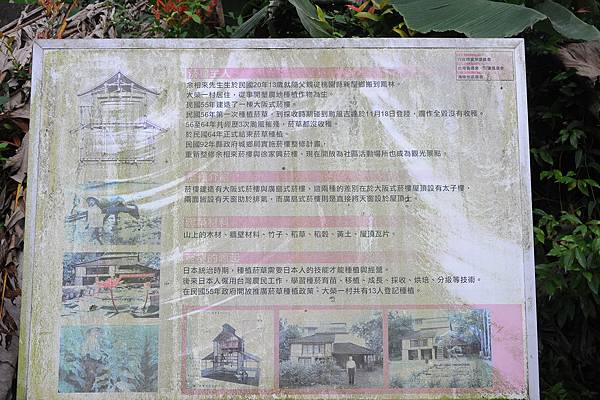 余相來先生生於民國20年13歲就隨父親從桃園縣新屋鄉搬到鳳林，
大榮一村居住，從事開墾農地種植作物為生。
民國55年建造了一棟大阪式菸樓。
民國56年第一次種植菸草，到採收時期碰到颱風吉達於11月18日登陸，農作全毀沒有收穫。
56至64年共經歷3次颱風摧殘，菸草都沒收穫。
於民國64年正式結束菸草種植。
民國92年縣政府城鄉局實施菸樓整修計畫，
重新整修余相來菸樓與徐家興菸樓，現在開放為社區活動場所也成為觀光景點。
菸樓建造有大阪式菸樓與廣島式菸樓，這兩種的差別在於大阪式菸樓屋頂設有太子樓，
兩面皆設有天窗助於排氣，而廣島式菸樓則是直接將天窗設於屋頂上
山上的木材、牆壁材料、竹子、稻草、稻穀、黃土、屋頂瓦片。
日本統治時期，種植菸草需要日本人的技能才能種植與經營。
後來日本人僱用台灣農民工作，學習種菸育苗、移植、成長、採收、烘焙、分級等技術。
在民國55年政府開放推廣菸草種植政策，大榮一村共有13人登記種植。